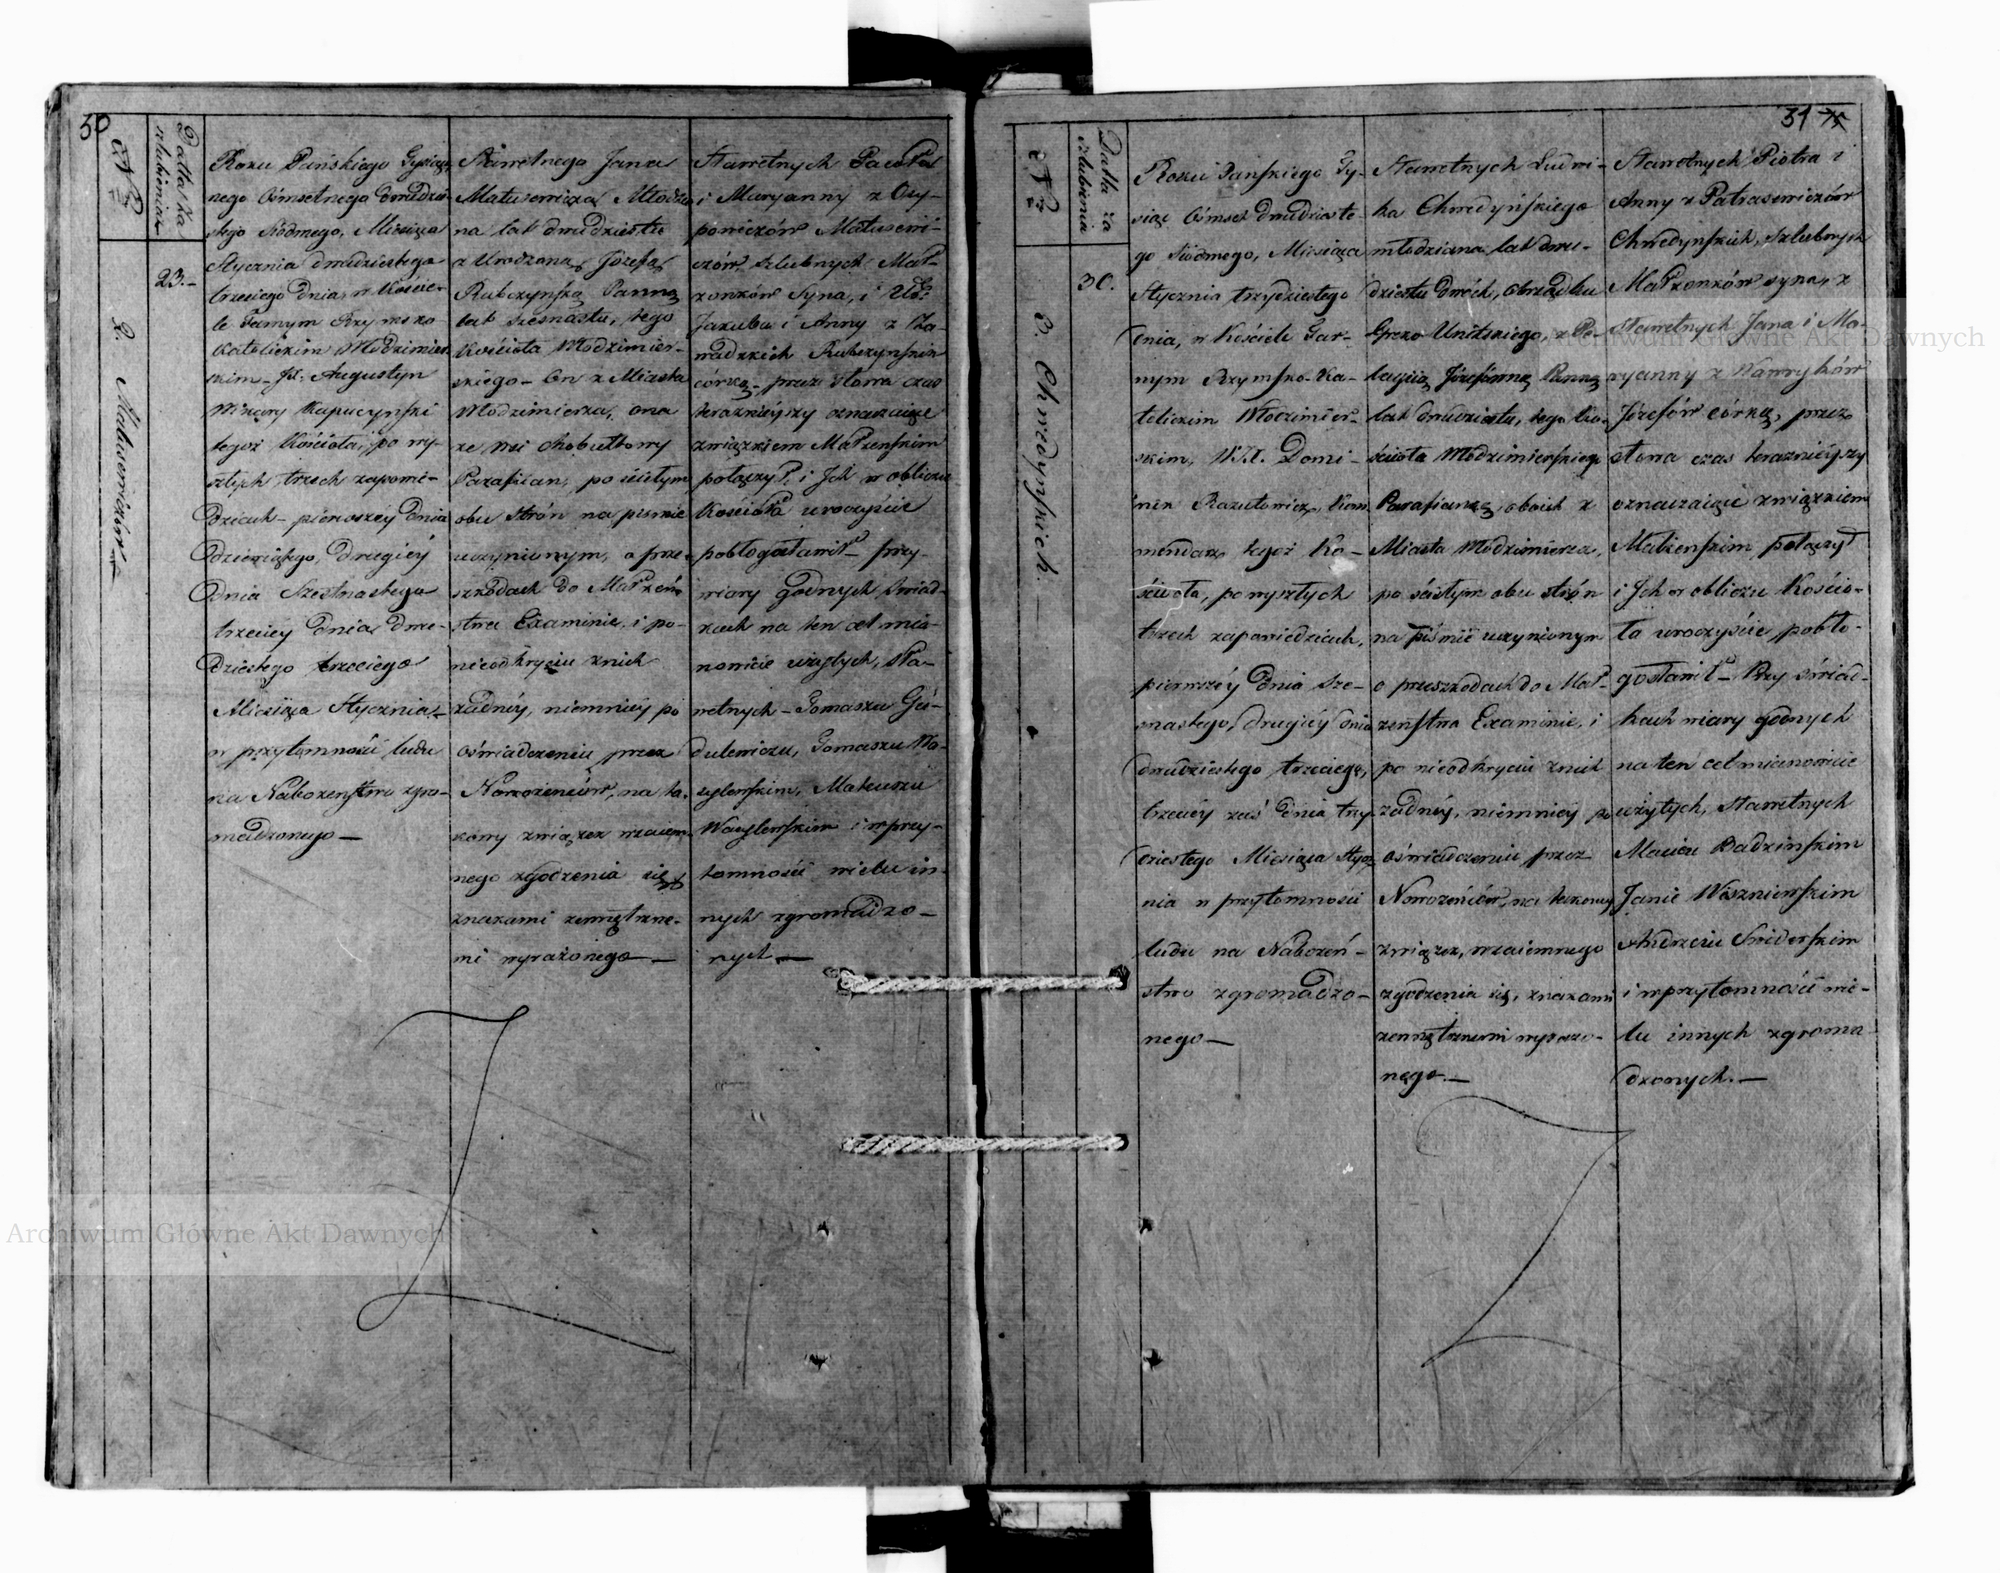 50
Datta za
szlubienia
23.
2. Matusewiczów
Roku Pańskiego Tysiącz-
nego Ośmsetnego Dwudzie-
stego Siódmego, Miesiąca
Stycznia dwudziestego
trzeciego Dnia, w Koście-
le Farnym Rzymsko
Katolickim Włodzimier-
skim Augustyn
Kapucynski
tegoż Kościoła, po wy-
szłych trzech zapowie-
dziach – pierwszey Dnia
Dziewiątego, drugiéy
Dnia Szesnastego
trzeciey Dnia Dwu-
dziestego trzeciego
Miesiąca Stycznia –
w przytomności ludu
na Nabożenstwo zgro-
madzonego –
Sławetnego Jana
Matusewicza, Młodzia-
na lat dwudziestu
z Urodzoną Józefą
Rubczynską Panną
lat szesnastu, tego
Kościoła Włodzimier-
skiego – On z Miasta
Włodzimierza, ona
ze wsi Chobułtowy
Parafian, po ścisłym
obu strón na pismie
uczynionym, o prze-
szkodach do Małżeń-
stwa Examinie, i po
nieodkryciu z nich
żadnéy, niemniéy po
oświadczeniu przez
Nowożeńców, na ta-
kowy związek wzaiem-
nego zgodzenia się
znakami zewnętrzne-
mi wyrażonego –
Sławetnych Pawła
i Maryanny z Osy-
powiczów Matusewi-
czów, szlubnych Mał-
żonków Syna, i Ur:
Jakuba i Anny z Za-
wadzkich Rubczynskich
córką – przez słowa czas
teraznieyszy oznaczaiące
związkiem Małżenskim
połączył, i Ich w obliczu
Kościoła uroczyście
pobłogosławił – przy
wiary godnych świad-
kach na ten cel mia-
nowicie użytych, Sła-
wetnych – Tomaszu
Tomaszu
Mateuszu
i w przy-
tomności wielu in-
nych zgromadzo-
nych –
51
Datta za
szlubienia
30.
3. Chwedyńskich.
Roku Pańskiego Ty-
siąc Ośmset dwudzieste-
go Siódmego, Miesiąca
Stycznia trzydziestego
Dnia, w Kościele Far-
nym Rzymsko-Ka-
tolickim Włodzimier-
skim, Domi-
nik Kom-
mendarz tegoż Ko-
ścioła, po wyszłych
trzech zapowiedziach,
pierwszéy Dnia Sze-
snastego, drugiéy Dnia
dwudziestego trzeciego,
trzeciéy zaś Dnia trzy-
dziestego Miesiąca Stycz-
nia w przytomności
ludu na Nabożeń-
stwo zgromadzo-
nego –
Sławetnych Ludwi-
ka Chwedyńskiego
młodziana lat dwu-
dziestu dwóch, obrządku
Greko Unitskiego, z Pe-
lagią Józefówną Panną
lat dwudziestu, tego Ko-
ścioła Włodzimierskiego
Parafianką, oboich z
Miasta Włodzimierza,
po ścisłym obu strón
na piśmie uczynionym
o przeszkodach do Mał-
żeństwa Examinie, i
po nieodkryciu z nich
żadnéy, niemniéy po
oświadczeniu przez
Nowożeńców, na takowy
związek, wzaiemnego
zgodzenia się, znakami
zewnętrznemi wyrażo-
nego. –
Sławetnych Piotra i
Anny z Patrasewiczów
Chwedynskich, szlubnych
Małżonków syna, z
Sławetnych Jana i Ma-
ryanny z Wawryków
Józefów córką, przez
słowa czas teraznieyszy
oznaczaiące związkiem
Małżenskim połączył
i Ich w obliczu Kościo-
ła uroczyście pobło-
gosławił – Przy świad-
kach wiary godnych
na ten cel mianowicie
użytych, Sławetnych
Macieiu Badzinskim
Janie Wiszniewskim
Andrzeiu Swiderskim
i w przytomności wie-
lu innych zgroma-
dzonych. –
Archiwum Główne Akt Dawnych
Archiwum Główne Akt Dawnych